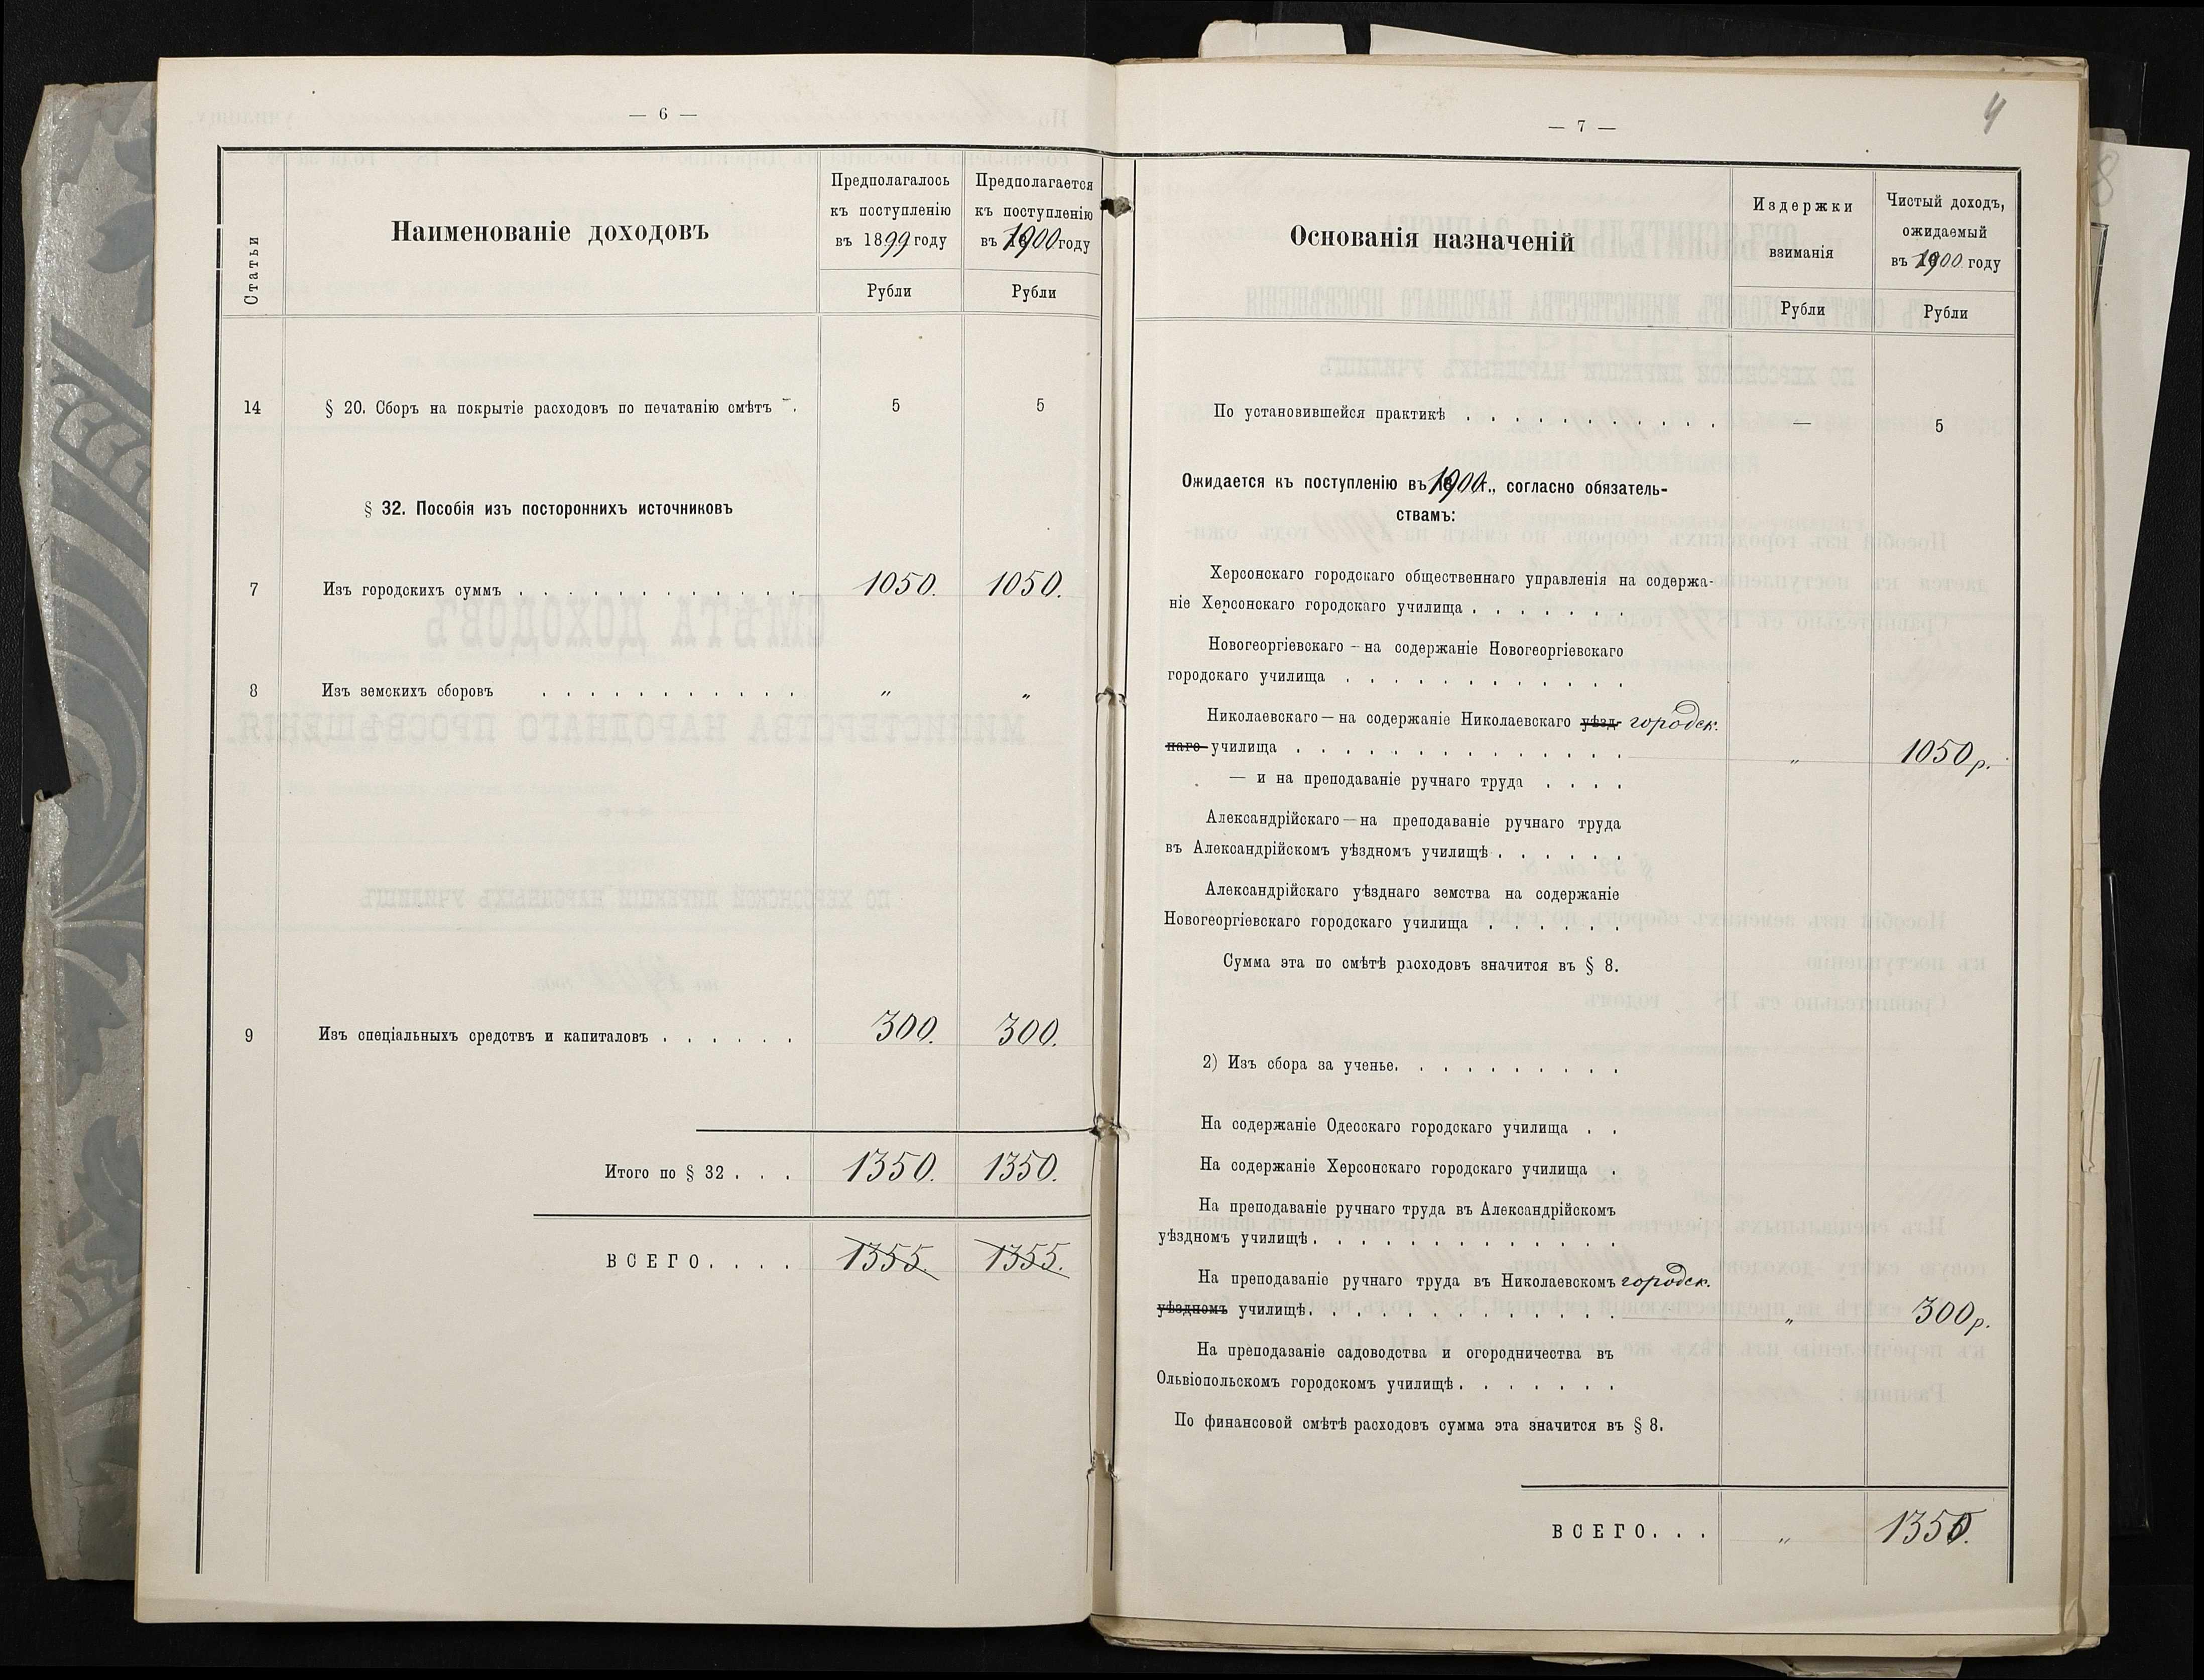 — 6 —
Статьи
Наименованіе доходовъ
Предполагалось
къ поступленію
въ 1899 году
Рубли
Предполагается
къ поступленію
въ 1900 году
Рубли
14 § 20. Сборъ на покрытіе расходовъ по печатанію смѣтъ . 5 5
§ 32. Пособія изъ постороннихъ источниковъ
7 Изъ городскихъ суммъ . . . . . . . . . . . . 1050. 1050.
8 Изъ земскихъ сборовъ . . . . . . . . . . . „ „
9 Изъ спеціальныхъ средствъ и капиталовъ . . . . . . 300. 300.
Итого по § 32 . . . 1350. 1350.
ВСЕГО. . . . 1355. 1355.
4
— 7 —
Основанія назначеній
Издержки
взиманія
Рубли
Чистый доходъ,
ожидаемый
въ 1900 году
Рубли
По установившейся практикѣ . . . . . . . . . . . — 5
Ожидается къ поступленію въ 1900 г., согласно обязатель-
ствамъ:
Херсонскаго городскаго общественнаго управленія на содержа-
ніе Херсонскаго городскаго училища . . . . . . .
Новогеоргіевскаго — на содержаніе Новогеоргіевскаго
городскаго училища . . . . . . . . . . . .
Николаевскаго — на содержаніе Николаевскаго уѣзд- городск.
наго училища . . . . . . . . . . . . . . „ 1050 р.
— и на преподаваніе ручнаго труда . . . .
Александрійскаго — на преподаваніе ручнаго труда
въ Александрійскомъ уѣздномъ училищѣ . . . . . .
Александрійскаго уѣзднаго земства на содержаніе
Новогеоргіевскаго городскаго училища . . . . . .
Сумма эта по смѣтѣ расходовъ значится въ § 8.
2) Изъ сбора за ученье. . . . . . . . . .
На содержаніе Одесскаго городскаго училища . .
На содержаніе Херсонскаго городскаго училища .
На преподаваніе ручнаго труда въ Александрійскомъ
уѣздномъ училищѣ . . . . . . . . . . . . .
На преподаваніе ручнаго труда въ Николаевскомъ городск.
уѣздномъ училищѣ. . . . . . . . . . . . . „ 300 р.
На преподазаніе садоводства и огородничества въ
Ольвіопольскомъ городскомъ училищѣ . . . . . . .
По финансовой смѣтѣ расходовъ сумма эта значится въ § 8.
ВСЕГО. . . „ 1350.